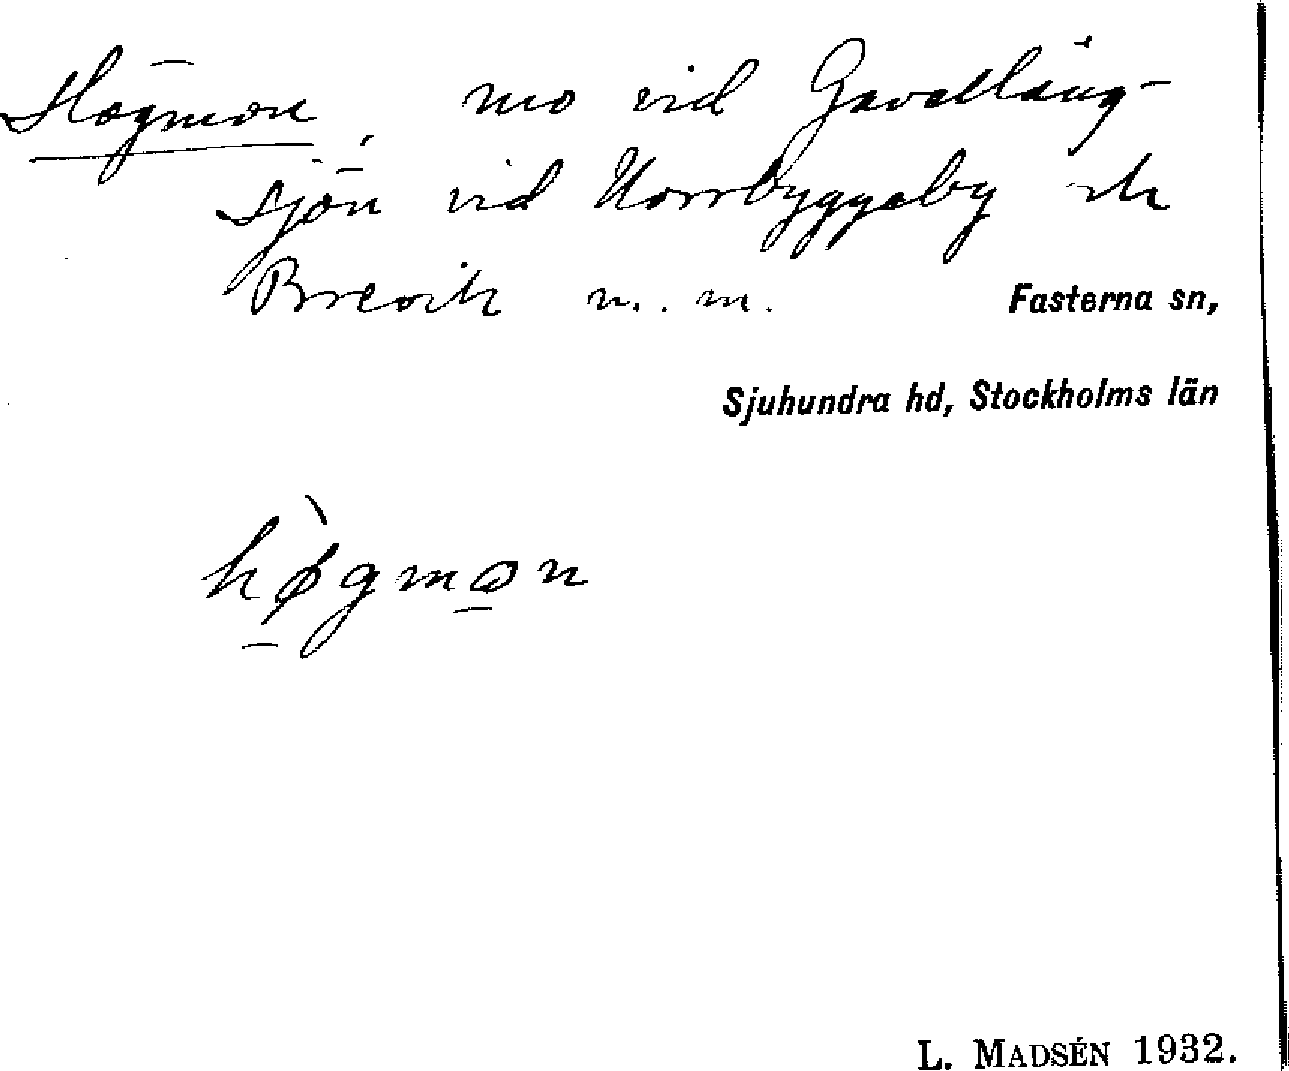 Högmon, mo vid Gavellång-
sjön vid Norrbyggeby och
Brevik m. m.
Fasterna sn,
Sjuhundra hd, Stockholms län
hø̀gmon
L. MADSÉN 1932.